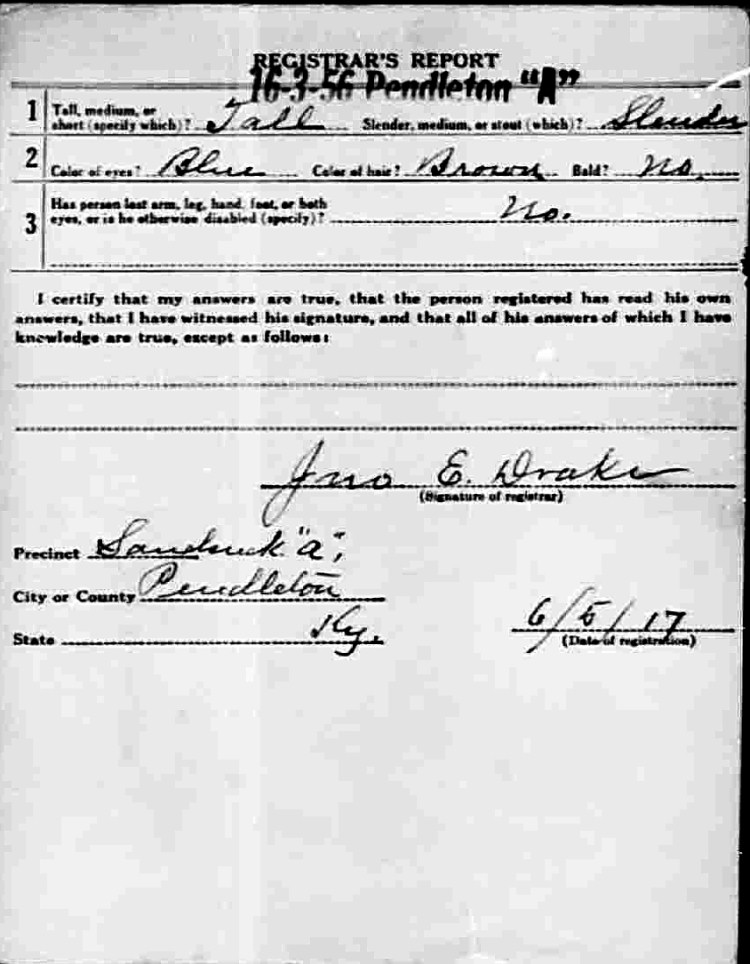 REGISTRAR'S REPORT
16-3-56 Pendleton "A"
1 Tall, medium, or
short (specify which)? Tall Slender, medium, or stout (which)? Slender
2 Color of eyes? Blue Color of hair? Brown Bald? No.
3 Has person lost arm, leg, hand, foot, or both
eyes, or is he otherwise disabled (specify)? No.
I certify that my answers are true, that the person registered has read his own
answers, that I have witnessed his signature, and that all of his answers of which I have
knowledge are true, except as follows:
Jno E. Drake
(Signature of registrar)
Precinct "a",
City or County Pendleton
State Ky.
6/5/17
(Date of registration)